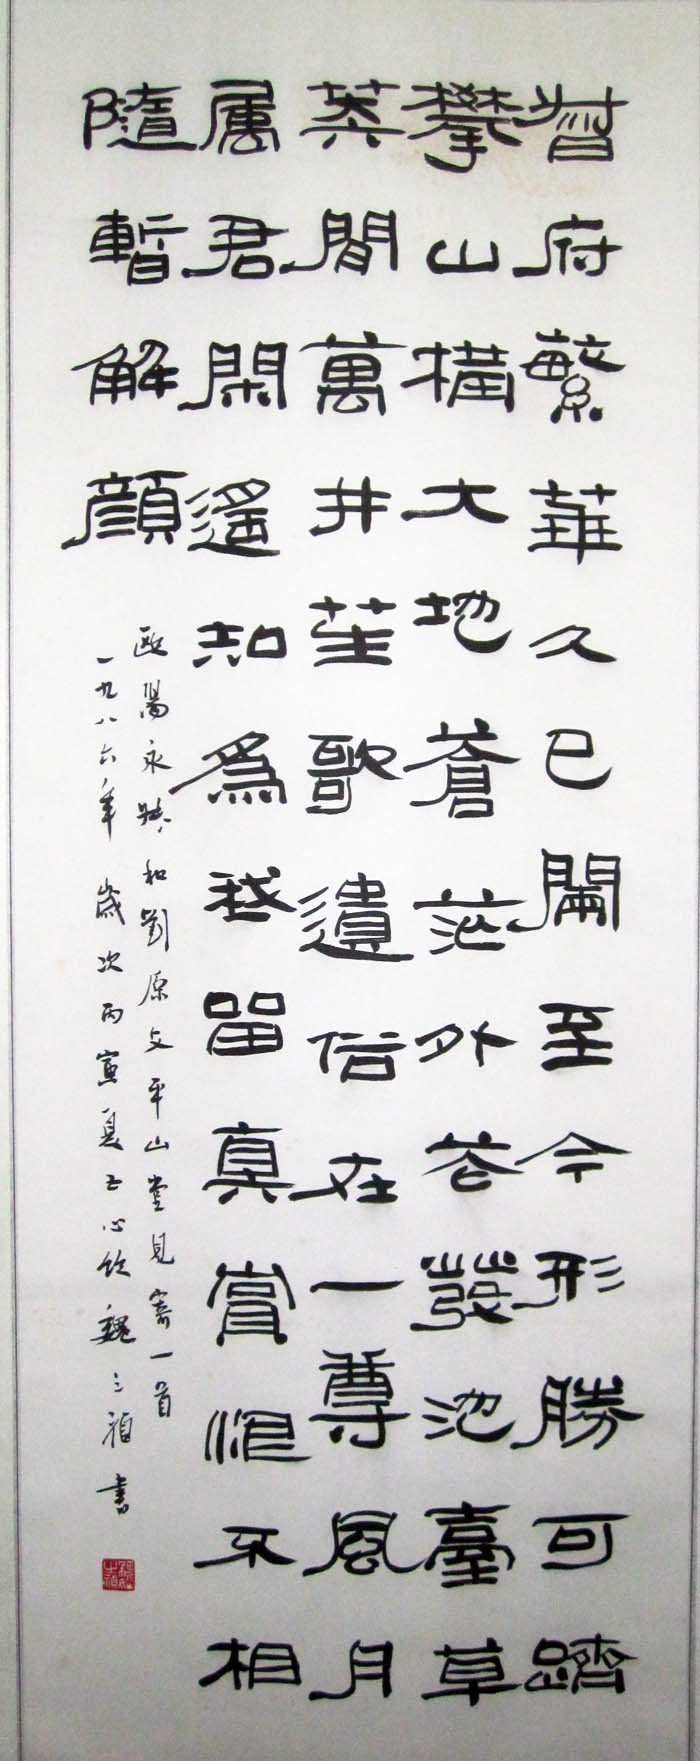 督府繁華久已闌至今形勝可躋
攀山橫大地蒼茫外花發池臺草
莽閒萬井笙歌遺俗在一尊風月
属君閑遙知為我留真賞恨不相
隨暫解顏
歐陽永叔和劉原父平山堂見寄一首
一九八六年歲次丙寅夏五心飲魏之禎書